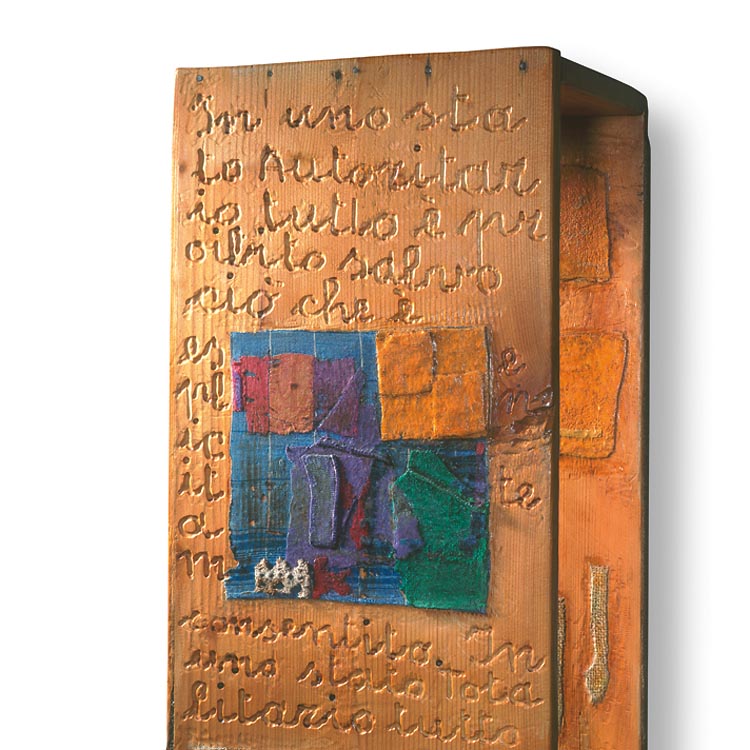 In uno sta
to Autoritar
io tutto è pr
oibito salvo
ciò che è
es e
pl n
ic
it te
a
m
consentito. In
uno stato Tota
litario tutto